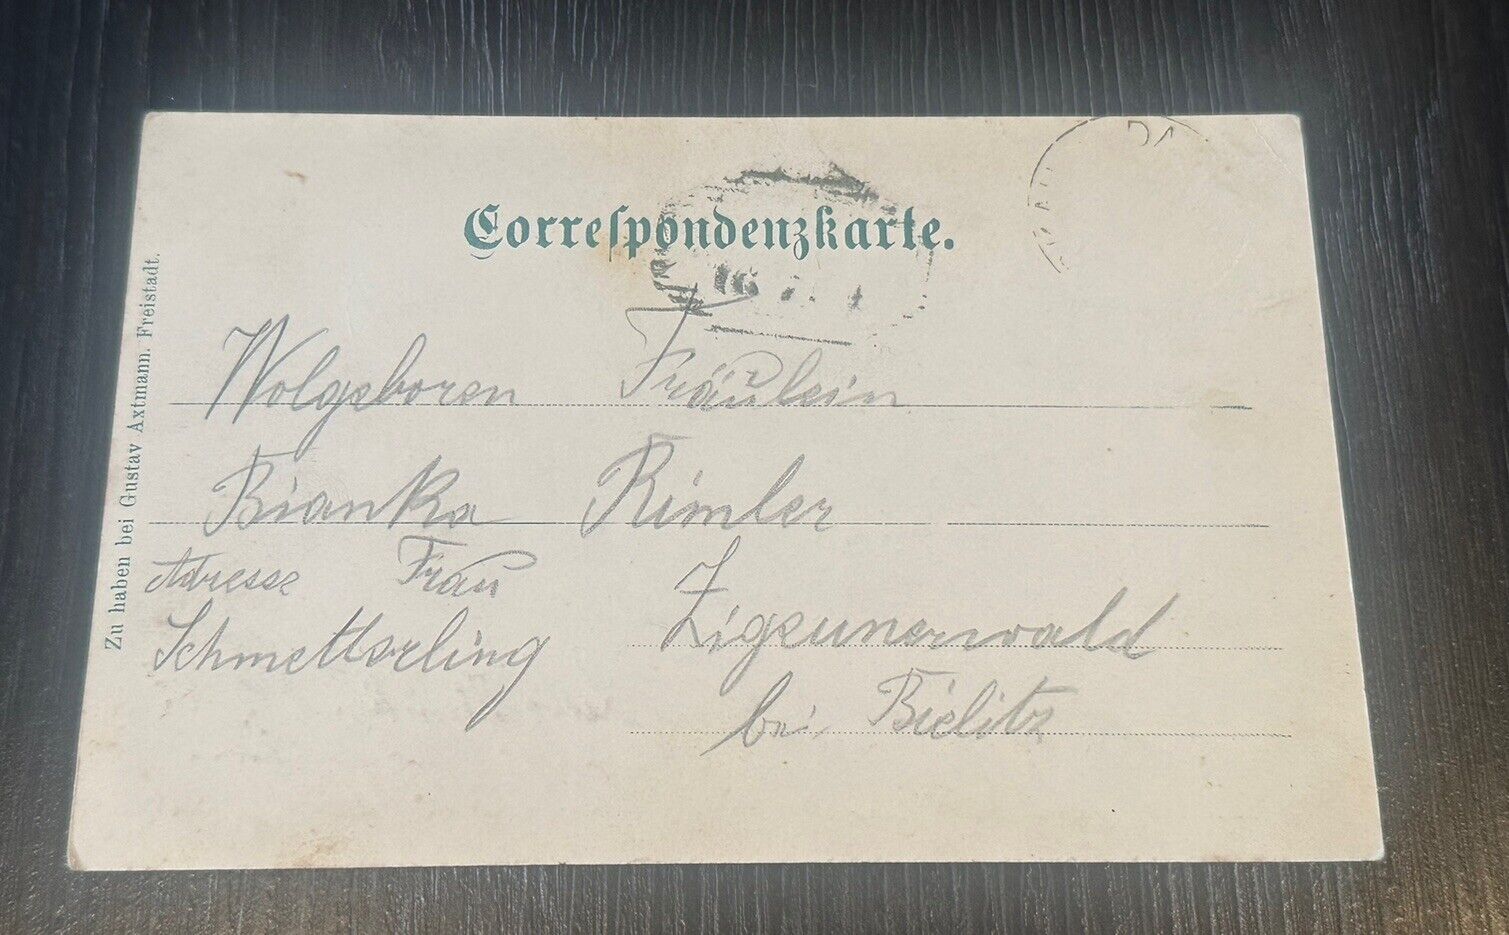 Correspondenzkarte.
Wolgeboren Fräulein
Bianka Rimler
Adresse Frau
Schmetterling
Zigeunerwald
bei Bielitz
Zu haben bei Gustav Axtmann. Freistadt.